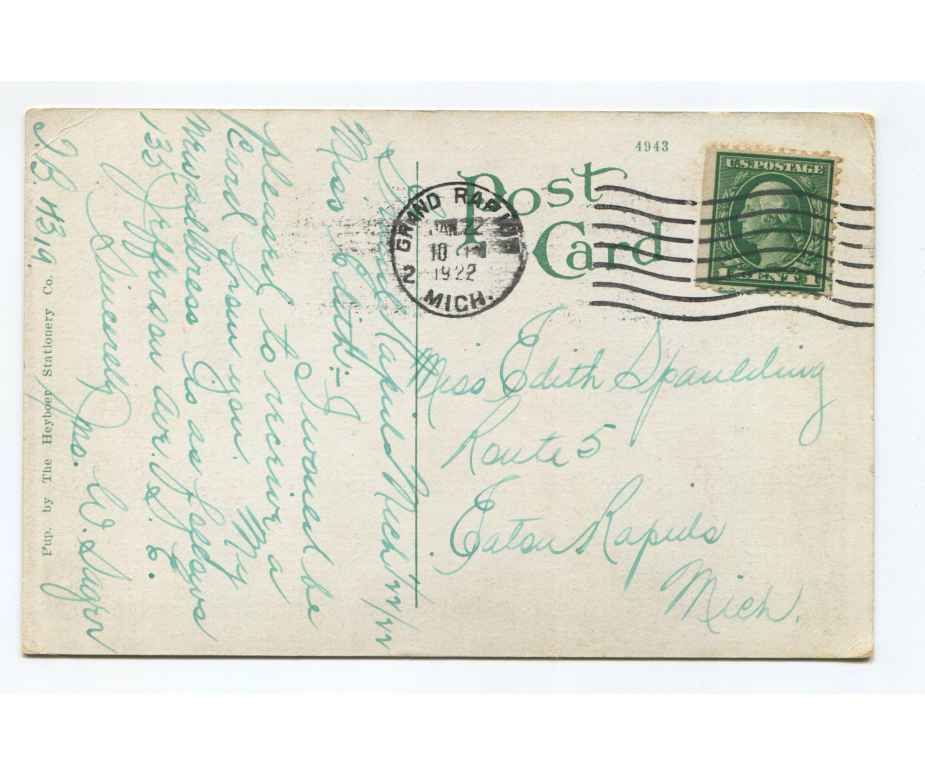 4943
Post
Card
U.S. POSTAGE
1 CENT 1
GRAND RAPIDS
JAN 22
10
1922
2 MICH.
Miss Edith Spaulding
Route 5
Eaton Rapids
Mich.
Grand Rapids Mich
Miss Edith:-
I would be
pleased to receive a
card from you. My
address is as follows
133 Jefferson ave. S. E.
Sincerely
Jno. W.
Pup. by The Heyboer Stationery Co.